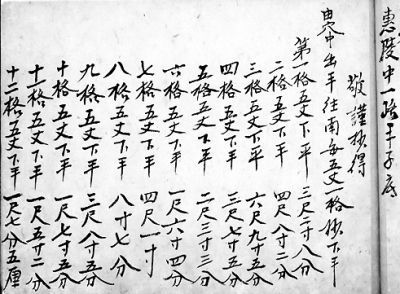 惠陵中一路平子底
敬謹抄得
由穴中出平往南每五丈一格抄下平
第一格五丈下平 三尺二寸八分
二格五丈下平 四尺八寸二分
三格五丈下平 六尺九寸五分
四格五丈下平 二尺三寸五分
五格五丈下平 二尺三寸三分
六格五丈下平 一尺六寸四分
七格五丈下平 四尺一寸
八格五丈下平 八寸七分
九格五丈下平 三尺八寸五分
十格五丈下平 一尺七寸五分
十一格五丈下平 一尺五寸二分
十二格五丈下平 一尺七分五厘